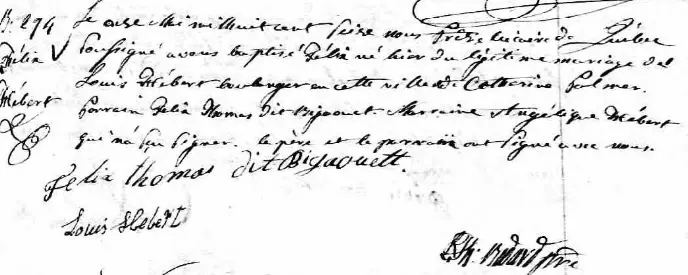 B. 274
Félix
Hébert
Le onze Mai mil huit cent seize nous Prêtre vicaire de Québec
soussigné avons baptisé Félix né hier du légitime mariage de
Louis Hébert boulanger en cette ville & de Catherine Palmer.
Parrain Felix Thomas dit Bigaouet. Marraine Angélique Hébert
qui n'a su signer. le père et le parrain ont signé avec nous.
Felix Thomas dit Bigaouett.
Louis Hebert
Bédard ptre